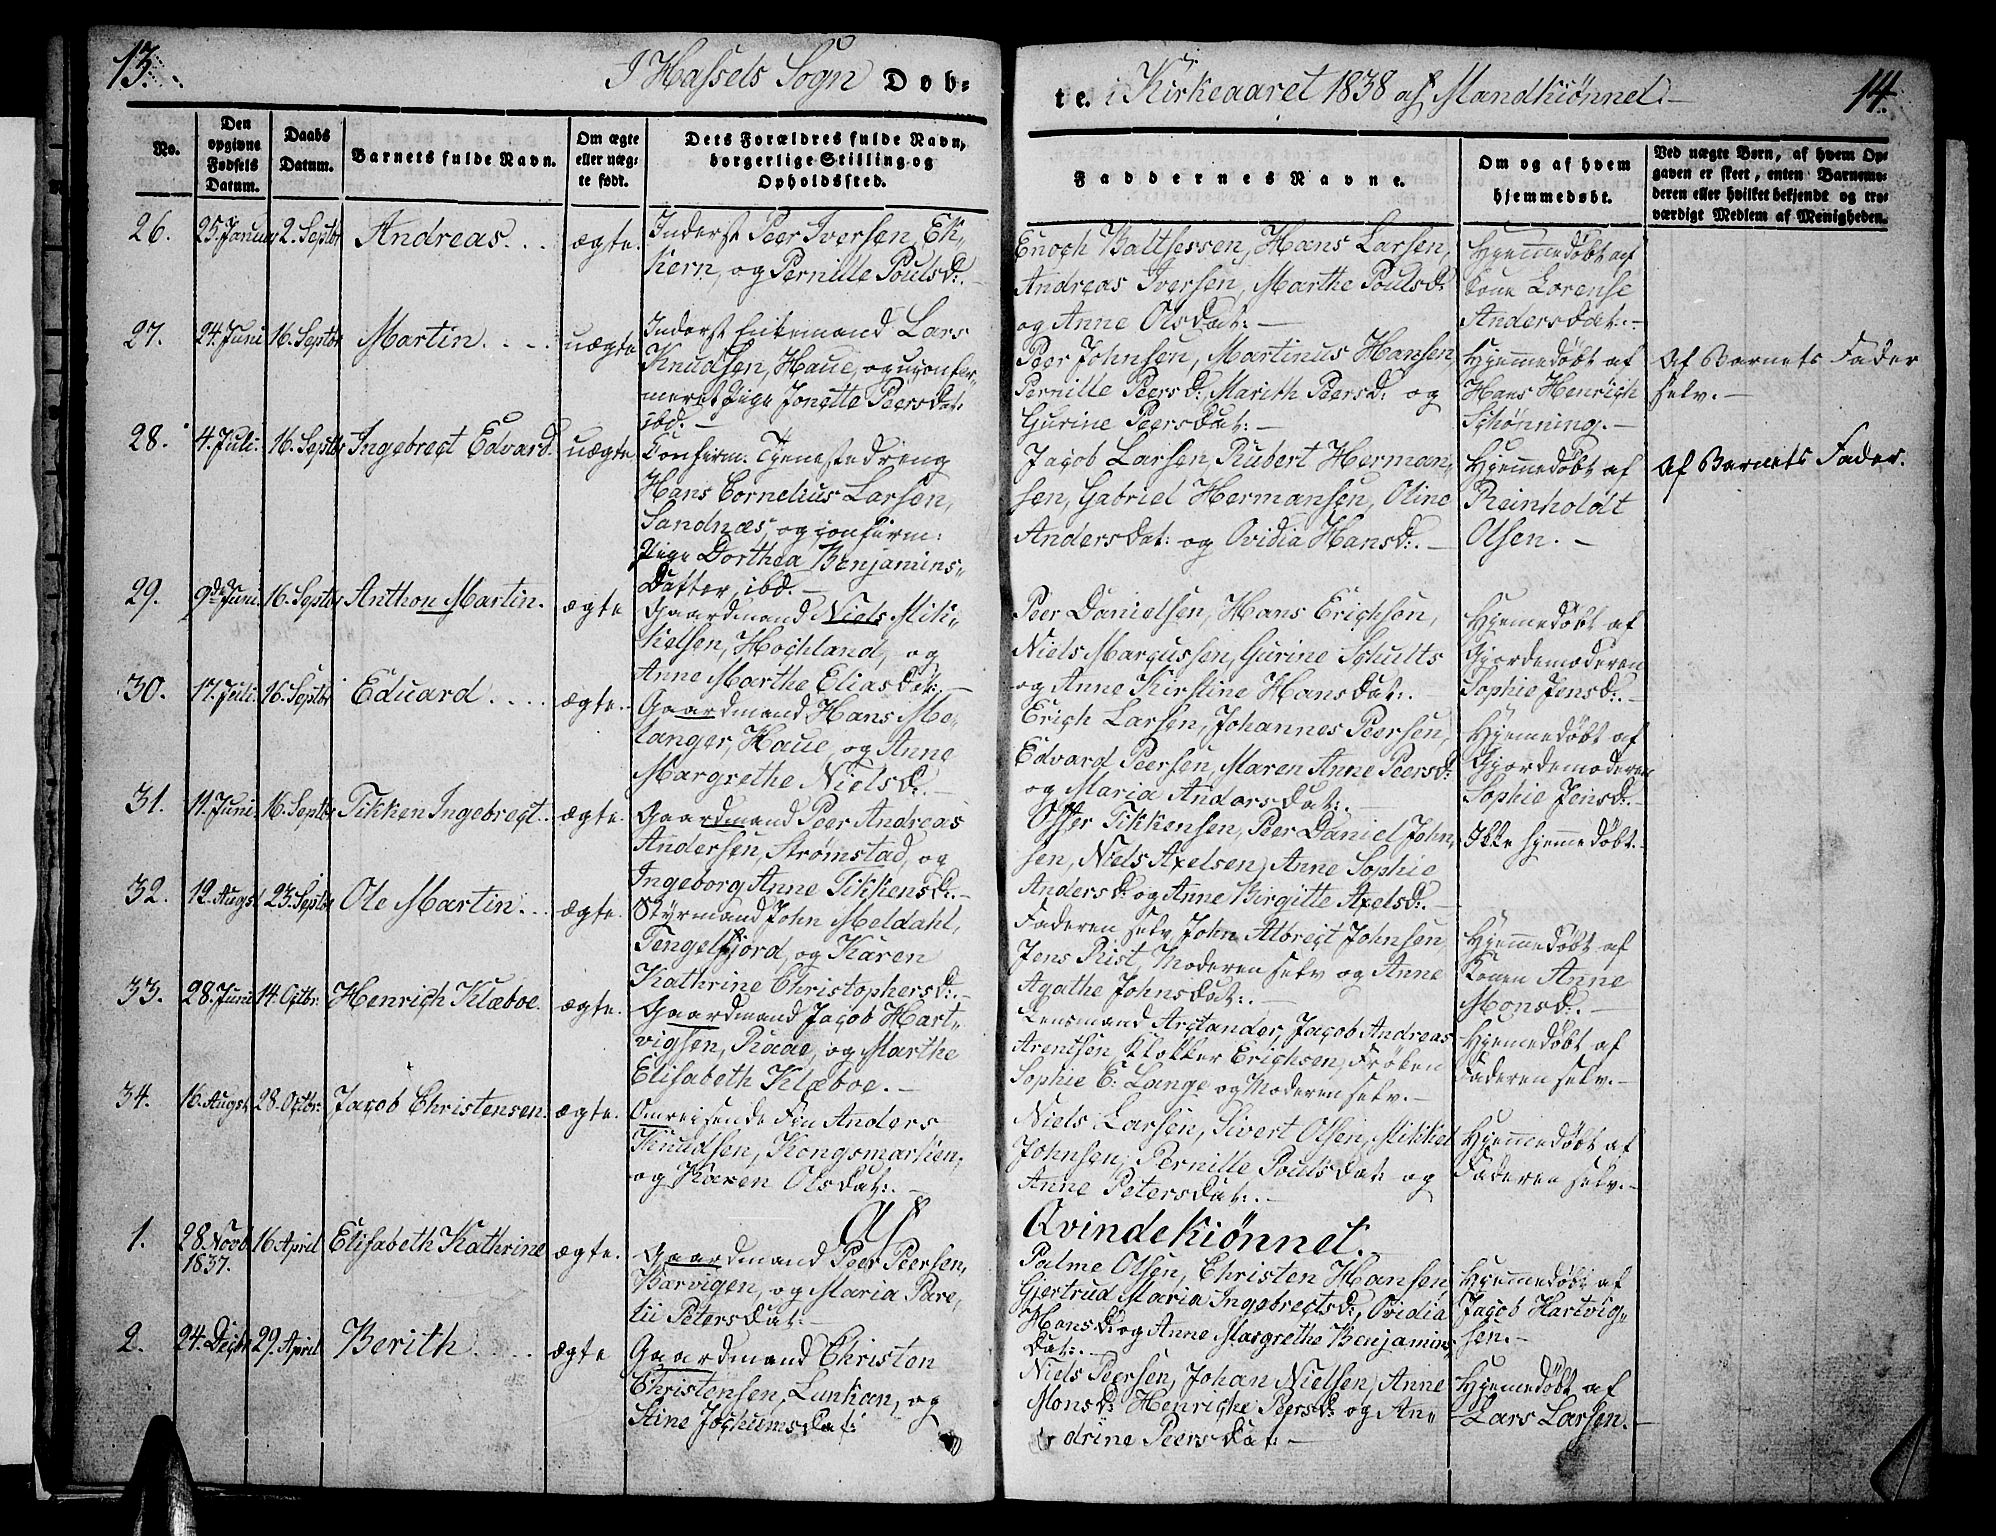 13.
I Hassels Sogn Døb-
te. i Kirkeaaret 1838 af Mandkiønnet.-
14.
No.
Den opgivne Fødsels Datum.
Daabs Datum.
Barnets fulde Navn.
Om ægte eller uæg-te født.
Dets Forældres fulde Navn, borgerlige Stilling og Opholdssted.
Faddernes Navne.
Om og af hvem hjemmedøbt.
Ved uægte Børn, af hvem Op-
gaven er skeet, enten Barnemo-
deren eller hvilket bekjendt og tro-
værdigt Medlem af Menigheden.
26. 25. Januar 2. Septbr Andreas. . . ægte.
Inderst Peer Iversen, Ek-
kern, og Pernille Poulsd:.-
Enoch Baltsessen, Hans Larsen,
Andreas Iversen, Marthe Poulsd:
og Anne Olsdat:-
Hjemmedøbt af
Kone Lorense
Andersdat:-
27. 24. Juni 16. Septbr Martin. . . . uægte
Inderst Enkemand Lars
Knudsen, Haue, og uconfir-
meret Pige Jonette Peersdat:
ibd.-
Peer Johnsen, Martinus Hansen,
Pernille Peersd: Marith Peersd. og
Gurine Peersdat:-
Hjemmedøbt af
Hans Henrich
Schønning.-
Af Barnets Fader
selv.-
28. 4. Juli. 16. Septbr Ingebregt Edvard. uægte
Confirm. Tjenestedreng
Hans Cornelius Larsen,
Sandnæs og confirm:
Pige Dorthea Benjamins-
datter, ibd.-
Jacob Larsen, Rubert Herman-
sen, Gabriel Hermansen, Oline
Andersdat: og Ovidia Hansd:.-
Hjemmedøbt af
Reinholdt
Olsen.-
Af Barnets Fader.
29. 9de Juni. 16. Septbr Anthon Martin. ægte
Gaardmand Niels Mik-
kelsen, Hochland, og
Anne Marthe Eliasdat:-
Peer Danielsen, Hans Erichsen,
Niels Marcussen, Gurine Schults
og Anne Kirstine Hansdat:.
Hjemmedøbt af
Gjordemoderen
Sophie Jensd:.-
30. 17. Juli. 16. Septbr Eduard. . . . ægte.
Gaardmand Hans Me-
langer, Haue, og Anne
Margrethe Nielsd:.-
Erich Larsen, Johannes Peersen,
Edvard Peersen, Maren Anne Peersd:
og Maria Andersdat:.-
Hjemmedøbt af
Gjordemoderen
Sophie Jensd:-
31. 11. Juni. 16. Septbr Tikken Ingebregt. ægte.
Gaardmand Peer Andreas
Andersen, Strømstad, og
Ingeborg Anne Tikkensd:.-
Offer Tikkensen, Peer Daniel John-
sen, Niels Axelsen, Anne Sophie
Andersd: og Anne Birgitte Axelsd:.-
Ikke hjemmedøbt.-
32. 12. Augst 23. Septbr Ole Martin. . . ægte.
Styrmand John Meldahl,
Tengelfjord, og Karen
Kathrine Christophersd:.-
Faderen selv John Albregt Johnsen,
Jens Rist, Moderen selv og Anne
Agathe Johnsdat:.-
Hjemmedøbt af
Konen Anne
Monsd:.-
33. 28. Juni 14. Octbr. Henrich Klæboe. ægte.
Gaardmand Jacob Hart-
vigsen, Raae, og Marthe
Elisabeth Klæboe.-
Lensmand Arctander, Jacob Andreas
Arentsen, Klokker Erichsen, Frøken
Sophie E. Lange og Moderen selv.-
Hjemmedøbt af
Faderen selv.-
34. 16. Augst 28. Octbr. Jacob Christensen. ægte.
Omreisende Fin Anders
Knudsen, Kongsmarken,
og Karen Olsdat:.-
Niels Larsen, Sivert Olsen, Mikkel
Johnsen, Pernille Poulsdat: og
Anne Petersdat:.-
Hjemmedøbt af
Faderen selv.-
Af Qvindekiønnet.
1. 28. Novb 1837. 16 April Elisabeth Kathrine ægte.
Gaardmand Peer Peersen,
Barvigen, og Maria Pare-
lii Petersdat:-
Palme Olsen, Christen Hansen,
Gjertrud Maria Ingebregtsd:, Ovidia
Hansd: og Anne Margrethe Benjamins-
dat:.-
Hjemmedøbt af
Jacob Hartvig-
sen.-
2. 24. Decbr 29. April Berith. . . . ægte
Gaardmand Christen
Christensen, Lunkan, og
Stine Jochumsdat:
Niels Peersen, Johan Nielsen, Anne
Monsd: Henriche Peersd: og An-
drine Peersdat:-
Hjemmedøbt af
Lars Larsen.-